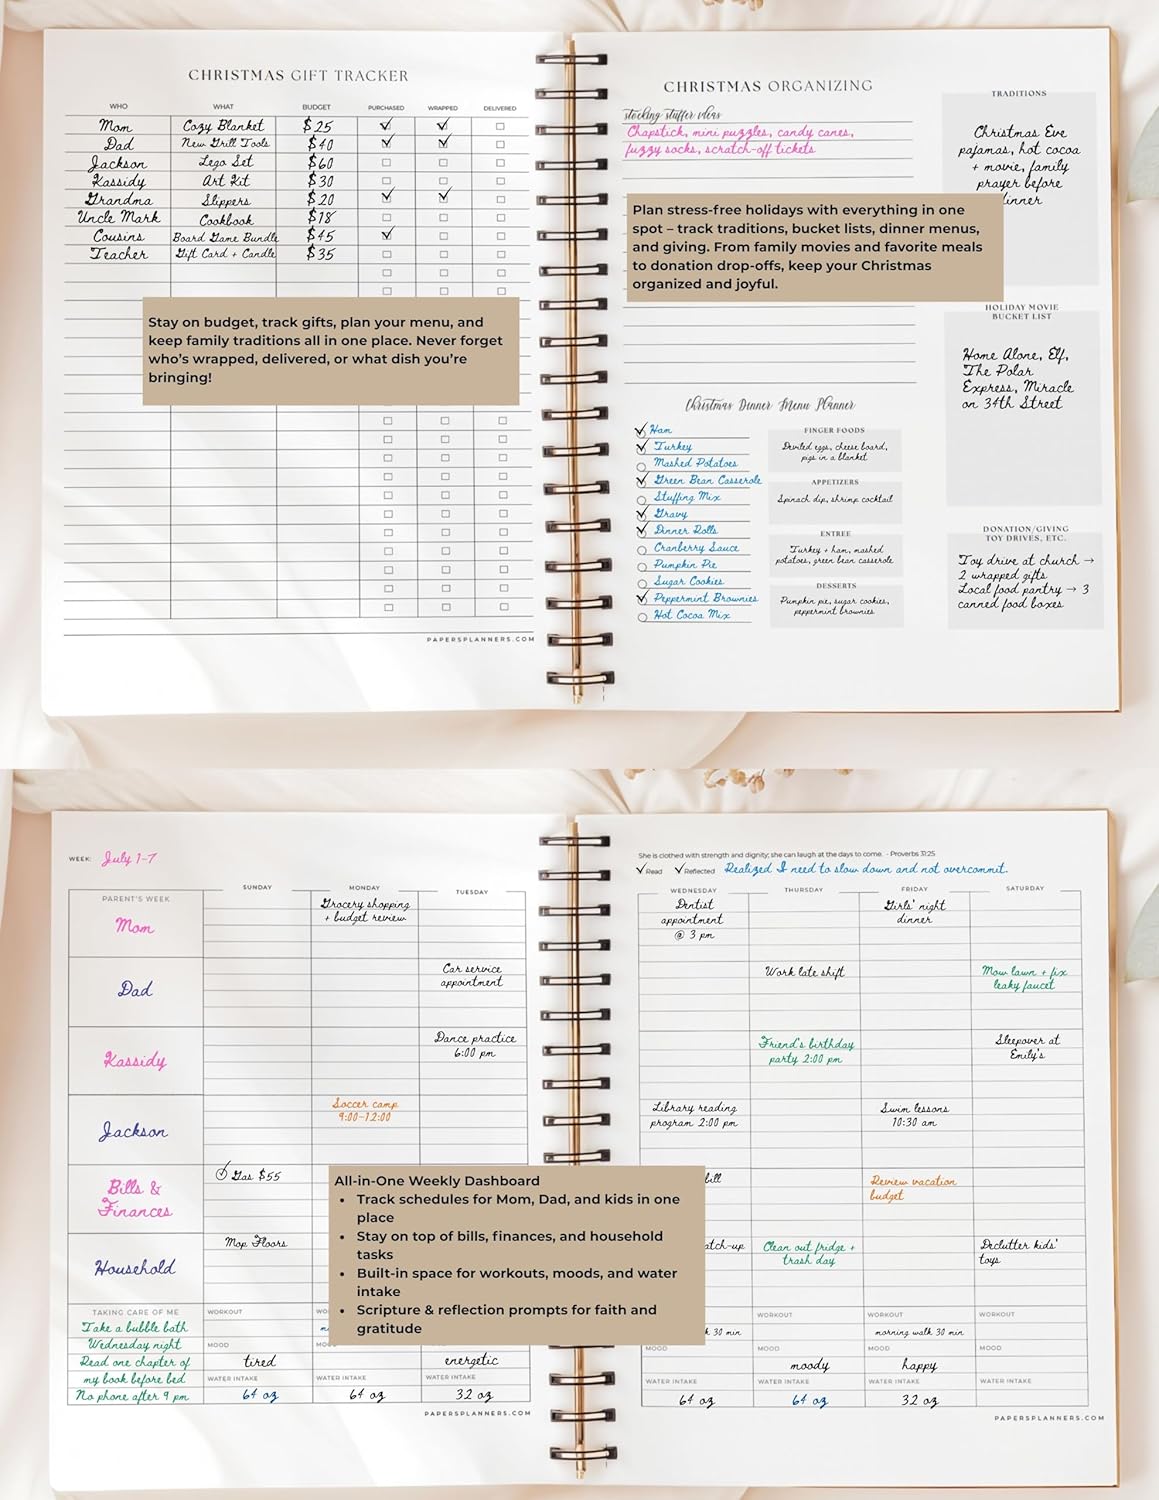 CHRISTMAS GIFT TRACKER
WHO WHAT BUDGET PURCHASED WRAPPED DELIVERED
Mom Cozy Blanket $25
Dad New Grill Tools $40
Jackson Lego Set $60
Kassidy Art Kit $30
Grandma Slippers $20
Uncle Mark Cookbook $18
Cousins Board Game Bundle $45
Teacher Gift Card + Candle $35
Stay on budget, track gifts, plan your menu, and
keep family traditions all in one place. Never forget
who's wrapped, delivered, or what dish you're
bringing!
PAPERSPLANNERS.COM
CHRISTMAS ORGANIZING
stocking stuffer ideas
Chapstick, mini puzzles, candy canes,
fuzzy socks, scratch-off tickets
Plan stress-free holidays with everything in one
spot – track traditions, bucket lists, dinner menus,
and giving. From family movies and favorite meals
to donation drop-offs, keep your Christmas
organized and joyful.
Christmas Dinner Menu Planner
Ham
Turkey
Mashed Potatoes
Green Bean Casserole
Stuffing Mix
Gravy
Dinner Rolls
Cranberry Sauce
Pumpkin Pie
Sugar Cookies
Peppermint Brownies
Hot Cocoa Mix
FINGER FOODS
Deviled eggs, cheese board,
pigs in a blanket
APPETIZERS
Spinach dip, shrimp cocktail
ENTREE
Turkey + ham, mashed
potatoes, green bean casserole
DESSERTS
Pumpkin pie, sugar cookies,
peppermint brownies
TRADITIONS
Christmas Eve
pajamas, hot cocoa
+ movie, family
prayer before
inner
HOLIDAY MOVIE
BUCKET LIST
Home Alone, Elf,
The Polar
Express, Miracle
on 34th Street
DONATION/GIVING
TOY DRIVES, ETC.
Toy drive at church →
2 wrapped gifts
Local food pantry → 3
canned food boxes
WEEK: July 1-7
SUNDAY MONDAY TUESDAY
PARENT'S WEEK
Mom
Grocery shopping
+ budget review
Dad
Car service
appointment
Kassidy
Dance practice
6:00 pm
Jackson
Soccer camp
9:00-12:00
Bills &
Finances
Gas $55
Household
Mop Floors
TAKING CARE OF ME
Take a bubble bath
Wednesday night
Read one chapter of
my book before bed
No phone after 9 pm
WORKOUT
MOOD
tired energetic
WATER INTAKE WATER INTAKE WATER INTAKE
64 oz 64 oz 32 oz
PAPERSPLANNERS.COM
All-in-One Weekly Dashboard
• Track schedules for Mom, Dad, and kids in one
place
• Stay on top of bills, finances, and household
tasks
• Built-in space for workouts, moods, and water
intake
• Scripture & reflection prompts for faith and
gratitude
She is clothed with strength and dignity; she can laugh at the days to come. - Proverbs 31:25
Read Reflected Realized I need to slow down and not overcommit.
WEDNESDAY THURSDAY FRIDAY SATURDAY
Dentist
appointment
@ 3 pm
Girls' night
dinner
Work late shift
Mow lawn + fix
leaky faucet
Friend's birthday
party 2:00 pm
Sleepover at
Emily's
Library reading
program 2:00 pm
Swim lessons
10:30 am
bill
Review vacation
budget
atch-up
Clean out fridge +
trash day
Declutter kids'
toys
WORKOUT WORKOUT WORKOUT
30 min morning walk 30 min
MOOD MOOD MOOD MOOD
moody happy
WATER INTAKE WATER INTAKE WATER INTAKE WATER INTAKE
64 oz 64 oz 32 oz
PAPERSPLANNERS.COM